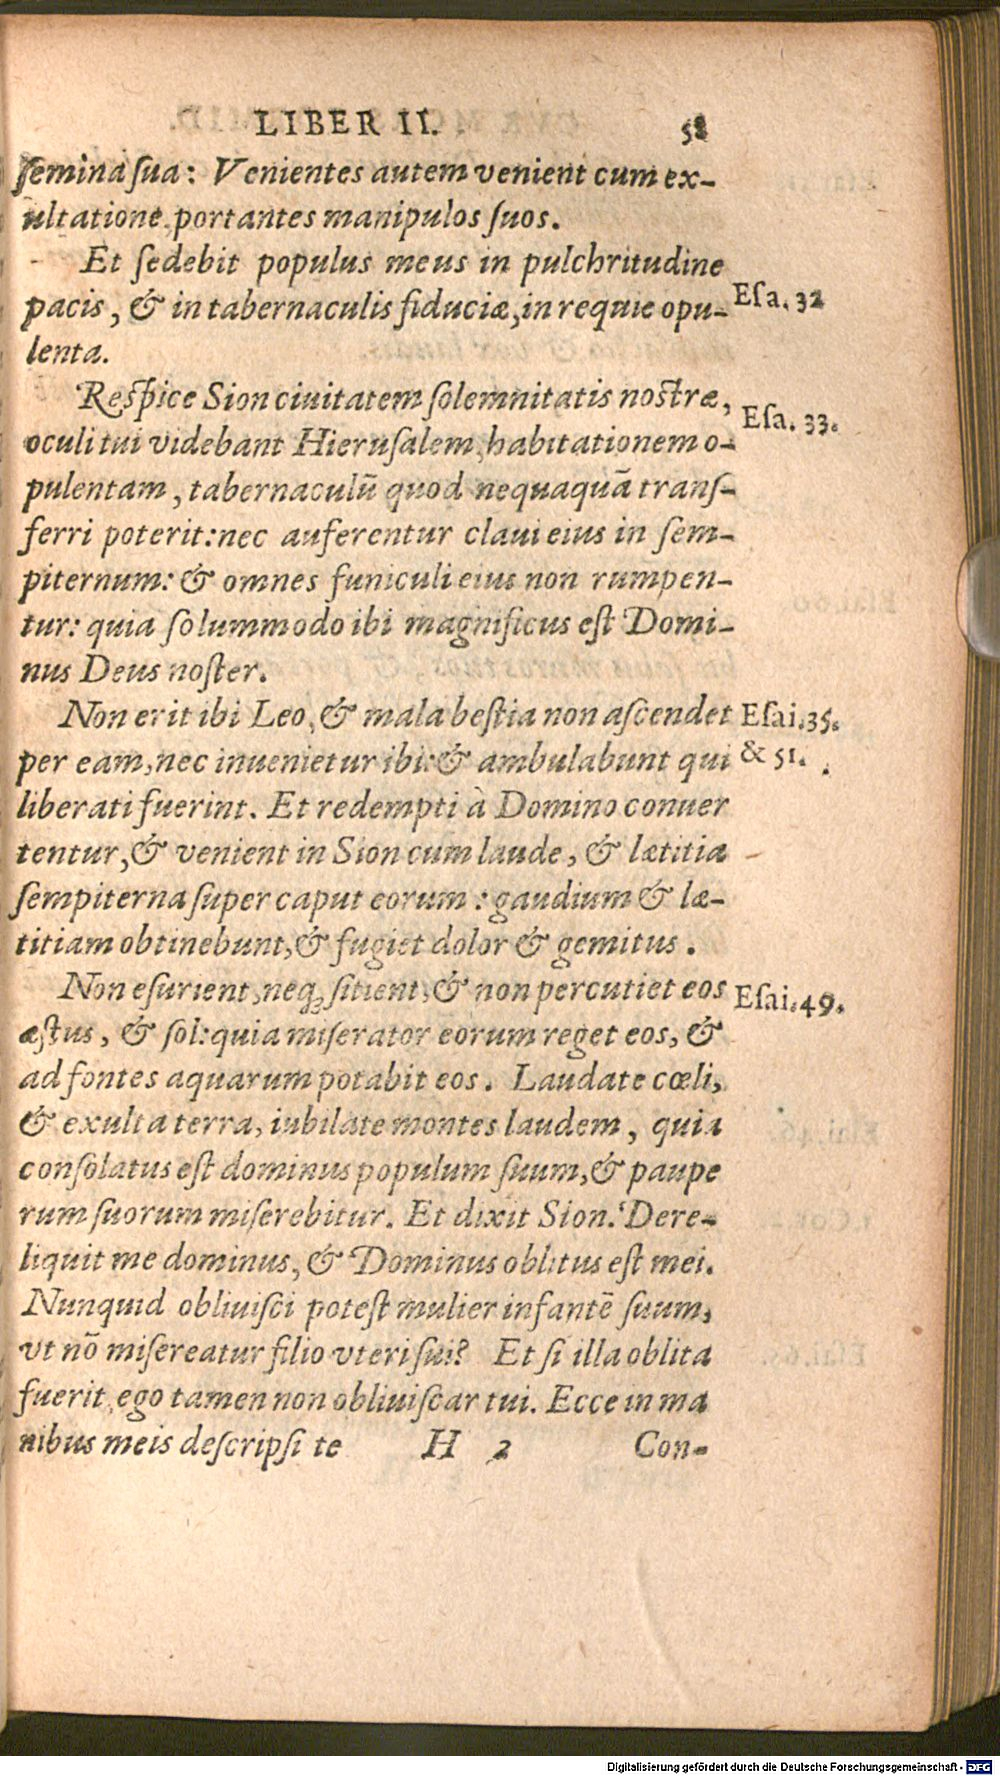 LIBER II. 58
ſemina ſua: Venientes autem venient cum ex-
ultatione portantes manipulos ſuos.
Et ſedebit populus meus in pulchritudine
pacis, & in tabernaculis fiduciæ, in requie opu-
lenta.
Eſa. 32
Reſpice Sion ciuitatem ſolemnitatis noſtræ,
oculi tui videbant Hieruſalem, habitationem o-
pulentam, tabernaculū quod nequaquā tranſ-
ferri poterit: nec auferentur claui eius in ſem-
piternum: & omnes funiculi eius non rumpen-
tur: quia ſolummodo ibi magnificus eſt Domi-
nus Deus noſter.
Eſa. 33.
Non erit ibi Leo, & mala beſtia non aſcendet
per eam, nec inuenietur ibi: & ambulabunt qui
liberati fuerint. Et redempti à Domino conuer
tentur, & venient in Sion cum laude, & lætitia
ſempiterna ſuper caput eorum: gaudium & læ-
titiam obtinebunt, & fugiet dolor & gemitus.
Eſai. 35.
& 51.
Non eſurient, neq; ſitient, & non percutiet eos
æſtus, & ſol: quia miſerator eorum reget eos, &
ad fontes aquarum potabit eos. Laudate cœli,
& exulta terra, iubilate montes laudem, quia
conſolatus eſt dominus populum ſuum, & paupe
rum ſuorum miſerebitur. Et dixit Sion. Dere-
liquit me dominus, & Dominus oblitus eſt mei.
Nunquid obliuiſci poteſt mulier infantē ſuum,
vt nō miſereatur filio vteri ſui? Et ſi illa oblita
fuerit, ego tamen non obliuiſcar tui. Ecce in ma
nibus meis deſcripſi te
Eſai. 49.
H 2 Con-
Digitalisierung gefördert durch die Deutsche Forschungsgemeinschaft - DFG